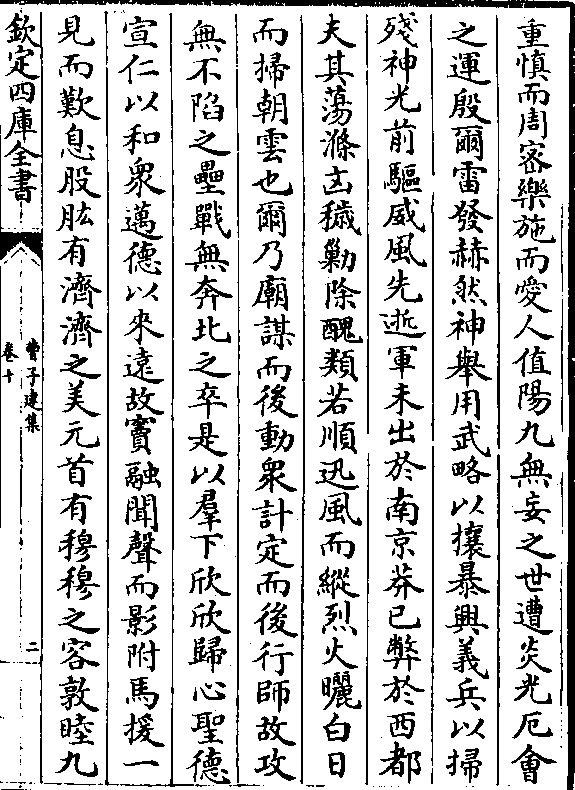 重慎而周密樂施而愛人值陽九無妄之世遭炎光厄會
之運殷爾雷發赫然神舉用武略以攘暴興義兵以掃
殘神光前驅威風先逝軍未出於南京莽已弊於西都
夫其蕩滌凶穢勦除醜類若順迅風而縱烈火曬白日
而掃朝雲也爾乃廟謀而後動衆計定而後行師故攻
無不陷之壘戰無奔北之卒是以羣下欣欣歸心聖德
宣仁以和衆邁德以來遠故竇融聞聲而影附馬援一
見而歎息股肱有濟濟之美元首有穆穆之容敦睦九
欽定四庫全書
曹子建集
卷十
二